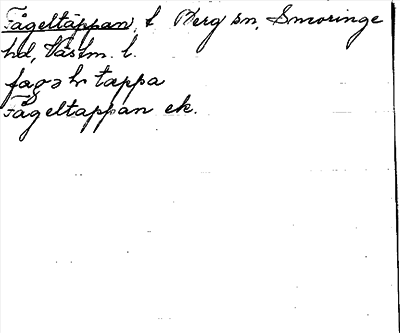 Fågeltäppan, t Berg sn, Snevringe
hd, Västm. l.
fagəltappa
Fågeltäppan ek.